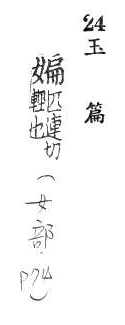 24 玉篇
媥匹連切(女部·P74)
女輕也